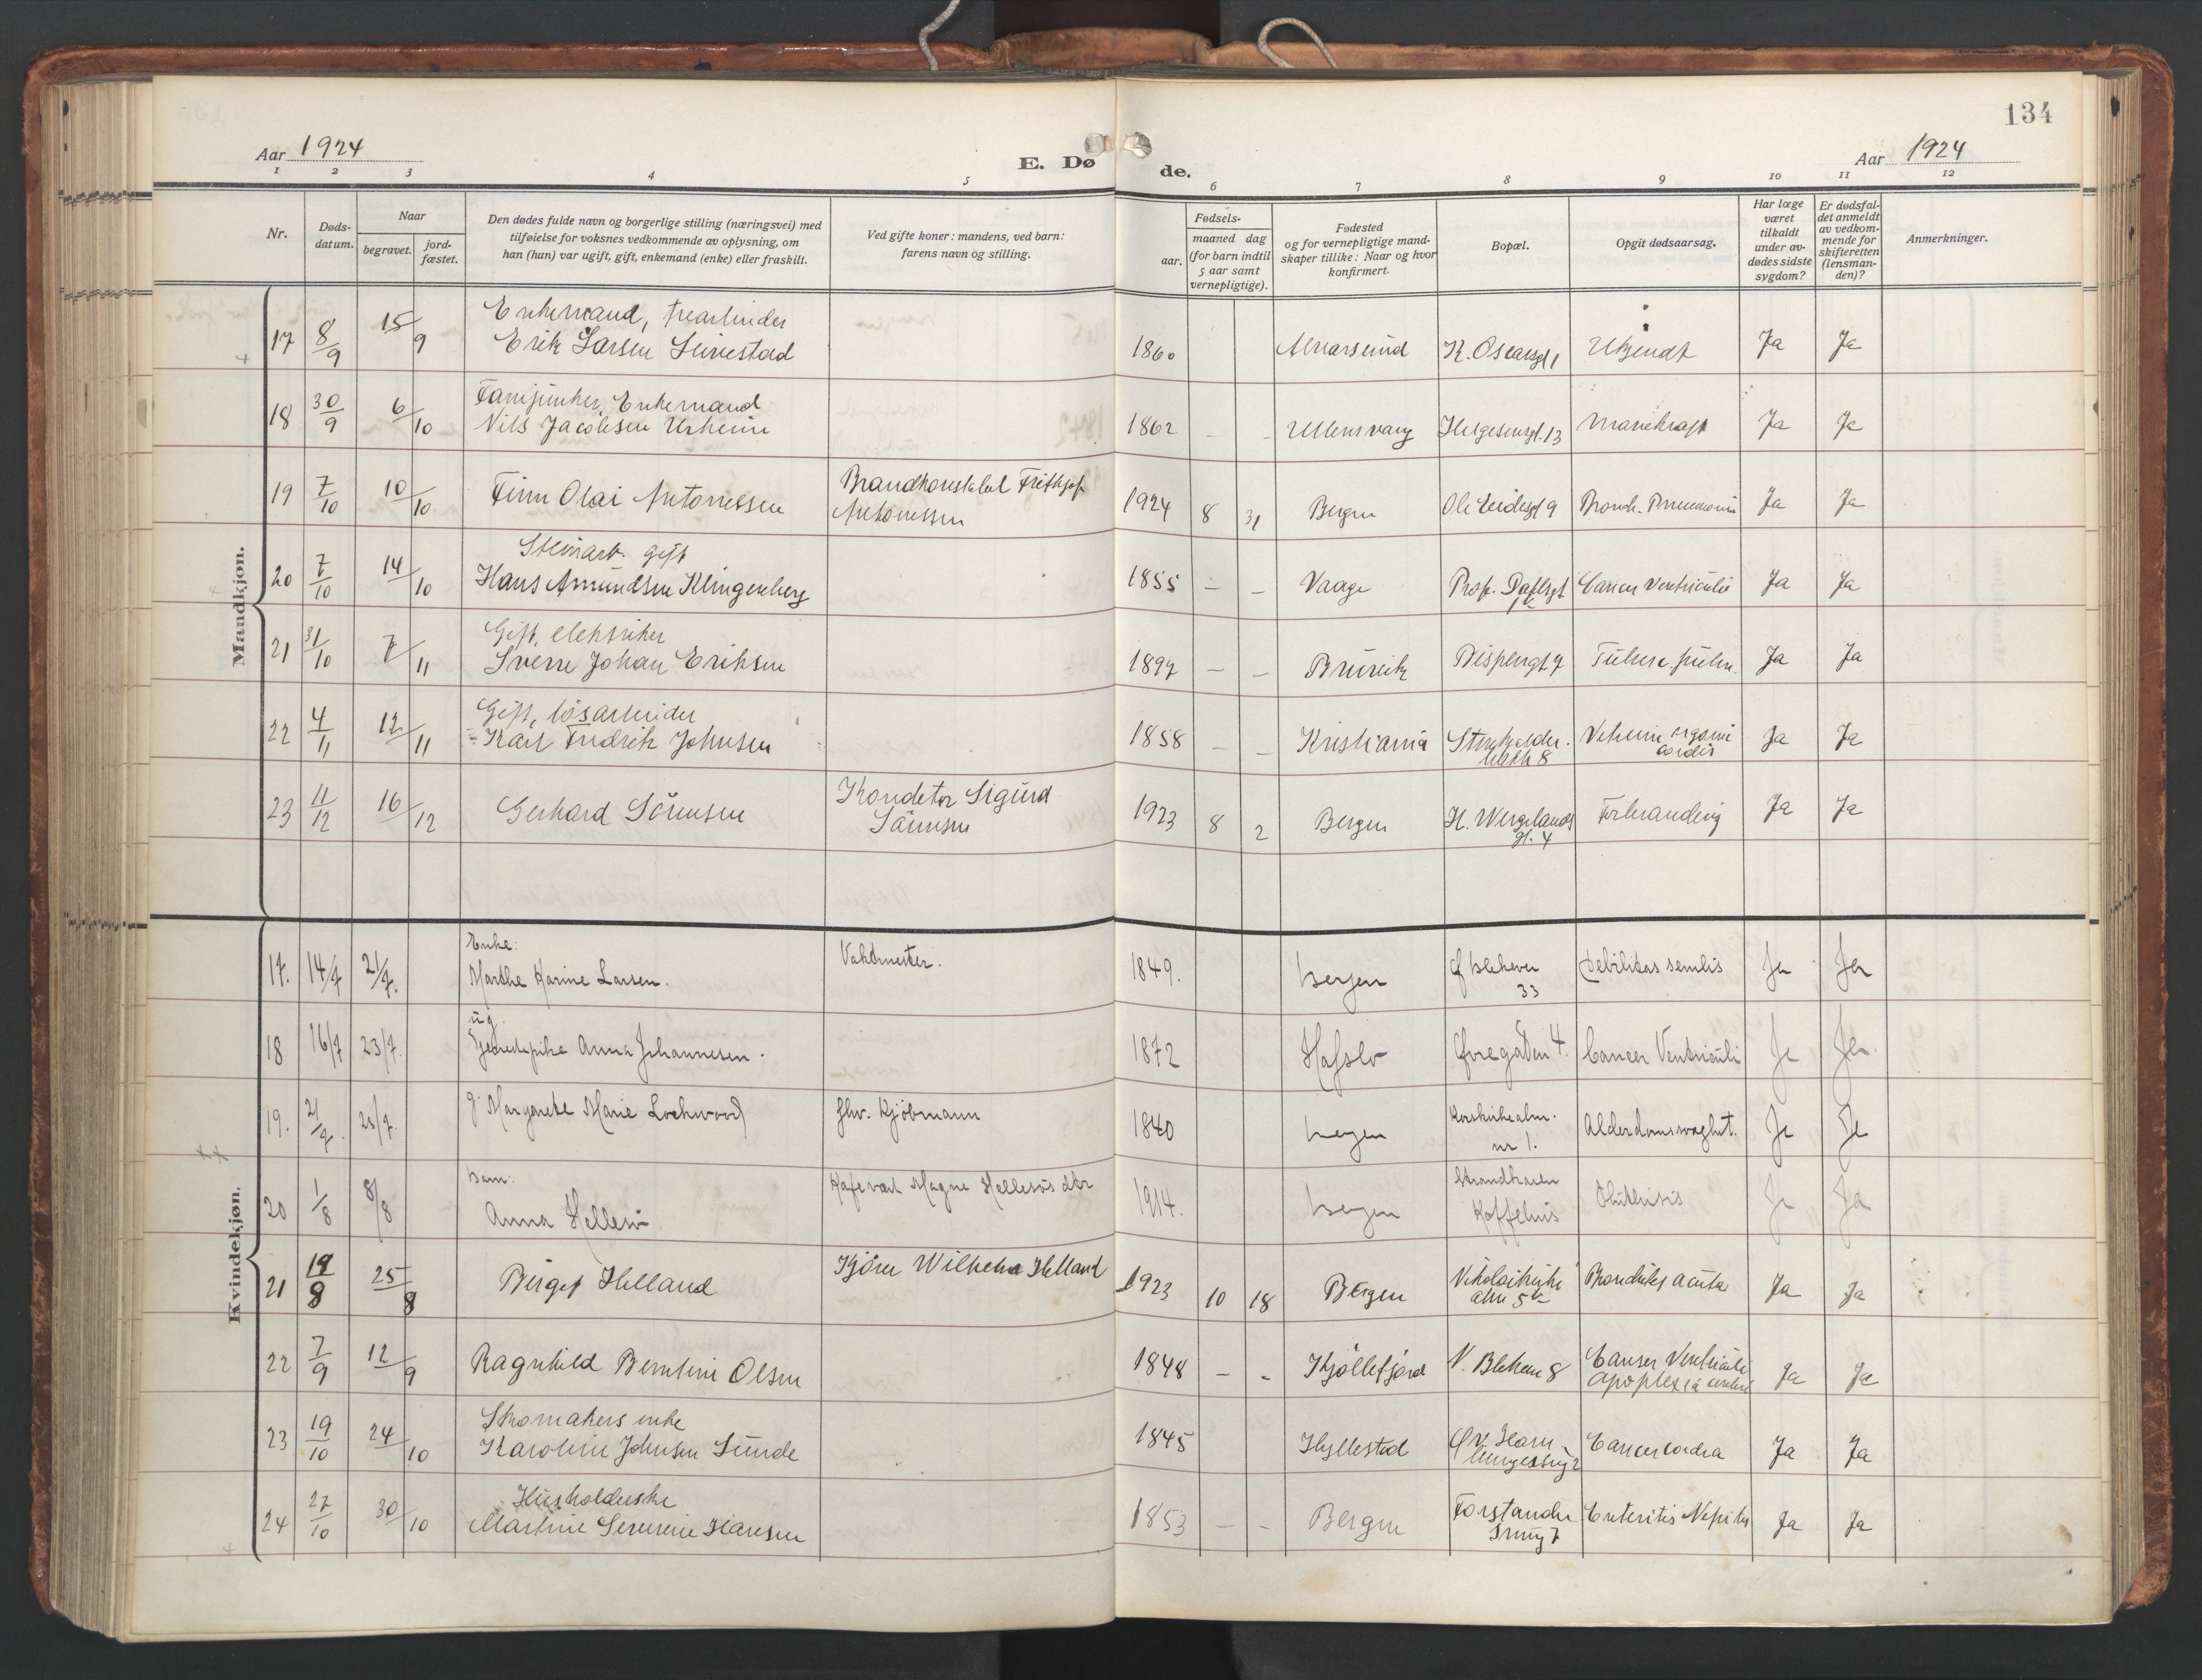 134
Aar 1924
E. Dø
de.
Aar 1924
1 2 3 4 5 6 7 8 9 10 11 12
Nr.
Døds-
datum.
Naar
begravet.
jord-
fæstet.
Den dødes fulde navn og borgerlige stilling (næringsvei) med
tilføielse for voksnes vedkommende av oplysning, om
han (hun) var ugift, gift, enkemand (enke) eller fraskilt.
Ved gifte koner: mandens, ved barn:
farens navn og stilling.
Fødsels-
aar.
maaned dag
(for barn indtil
5 aar samt
vernepligtige).
Fødested
og for vernepligtige mand-
skaper tillike: Naar og hvor
konfirmert.
Bopæl.
Opgit dødsaarsag.
Har læge
været
tilkaldt
under av-
dødes sidste
sygdom?
Er dødsfal-
det anmeldt
av vedkom-
mende for
skifteretten
(lensman-
den)?
Anmerkninger.
Mandkjøn.
Enkemand,
17 8/9 15/9 Erik Larsen 1860 K. Oscarsgt 1 Ukjendt Ja Ja
Fanejunker, Enkemand
18 30/9 6/10 Nils Jacobsen 1862 – – Ullensvang Helgesensgt. 13 Ja Ja
19 7/10 10/10 Finn Olai Antonessen Brandkonstabel Frithjof
Antonessen 1924 8 31 Bergen 9 Bronch. Ja Ja
Stenarb. gift
20 7/10 14/10 Hans Amundsen Klingenberg 1855 – – Vaage Prof. Dahlsgt Cancer Ventriculi Ja Ja
Gift, elektriker
21 31/10 7/11 Sverre Johan Eriksen 1897 – – Bispengt 7 Tuberc. pulm. Ja Ja
Gift, løsarbeider
22 4/11 12/11 Karl Fredrik Johnsen 1858 – – Kristiania 8 cordis Ja Ja
23 11/12 16/12 Gerhard Sörensen Konditor Sigurd
Sörensen 1923 8 2 Bergen H. Wergelands
gt. 4 Forbrænding Ja Ja
Kvindekjøn.
Enke.
17. 14/7 21/7. Marthe Karine Larsen. Vaktmester. 1849. Bergen Ø Blekevei
33 Debilitas senilis Ja Ja
ug.
18 16/7 23/7. Tjenestepike Anna Johannesen. 1872 Hafslo Øvregaten 4. Cancer Ventriculi Ja Ja
19. 21/7. 25/7. g. Margarethe Marie Lockwood fhv. Kjöbmann 1840 Bergen Korskirkealm.
nr 1. Alderdomssvaghet. Ja Ja
Barn:
20 1/8 8/8 Anna Hellesö Kafevert Magne Hellesös dtr 1914. Bergen Strandkaien
Kaffehus Ja Ja
21 19/8 25/8 Birgit Helland Wilhelm Helland 1923 10 18 Bergen Nikolaikirke
alm 5 Bronchitis acuta Ja Ja
22 7/9 12/9 Ragnhild Berntine Olsen 1848 – – Kjöllefjord V. Blekevei 8 Canser Ventriculi
apoplexia cerebri Ja Ja
Skomakers enke
23 19/10 24/10 Karoline Johnsen Sunde 1845 Hyllestad Cancer Ja Ja
Husholderske
24 27/10 30/10 Martine Severine Hansen 1853 – – Bergen Forstander
7 Enteritis Ja Ja